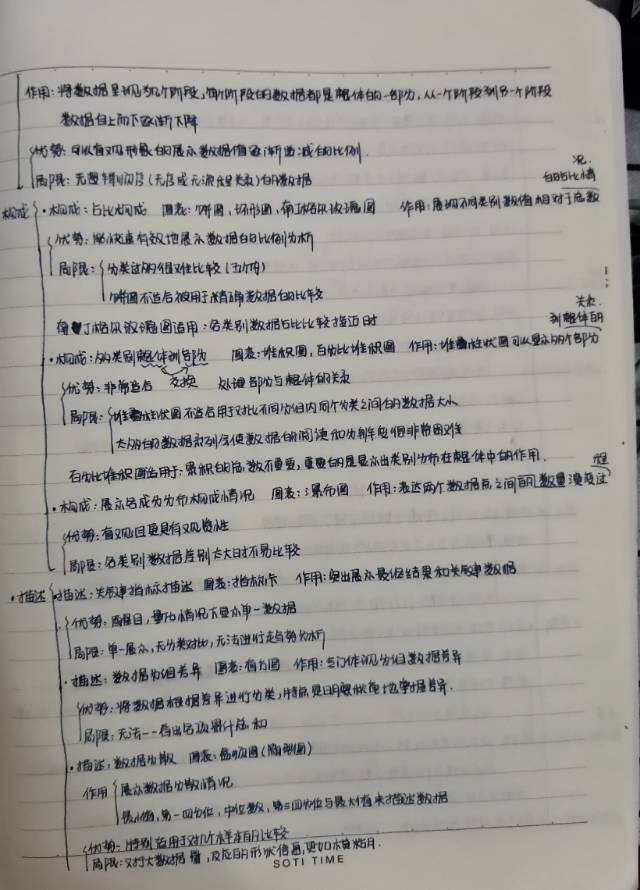 作用：将数据呈现为几个阶段，每个阶段的数据都是整体的一部分，从一个阶段到另一个阶段
数据自上而下逐渐下降
优势：可以有效形象的展示数据值逐渐递减的比例.
局限：无逻辑顺序（无序或无流程关系）的数据
构成 · 构成：占比构成 图表：饼图，环形图，南丁格尔玫瑰图 作用：展现不同类别数值相对于总数
的占比情
况.
优势：能快速有效地展示数据的比例分析
局限：分类过多则难比较（五个内）
饼图不适合被用于精确数据的比较
南丁格尔玫瑰图适用：各类别数据占比比较接近时
· 构成：多类别整体到部分 图表：堆积图，百分比堆积图 作用：堆积柱状图可以显示多个部分
到整体的
关系.
优势：非常适合 交换 处理部分与整体的关系
局限：堆积柱状图不适合用于对比不同分组内同个分类之间的数据大小
太多的数据系列会使数据的阅读和分辨变得非常困难
百分比堆积图适用于：累积的总数不重要，重要的是显示出类别分布在整体中的作用.
· 构成：展示各成分分布构成情况 图表：瀑布图 作用：表达两个数据点之间的数量演变过
程
优势：直观且更具有观赏性
局限：各类别数据差别太大时不易比较
· 描述 · 描述：关键单指标描述 图表：指标卡 作用：突出展示最终结果和关键数据
优势：醒目，量少情况下显示单一数据
局限：单一展示，无分类对比，无法进行走势分析
· 描述：数据分组差异 图表：直方图 作用：专门体现分组数据差异
优势：将数据根据差异进行分类，特点是明显
局限：无法一一看出各项累计总和
· 描述：数据分散 图表：盒须图（箱型图）
作用 展示数据分散情况
最小值，第一四分位，中位数，第三四分位与最大值来描述数据
优势：特别适用于对几个样本的比较
局限：对大数据量，反应的形状信息更加模糊.
SOTI TIME